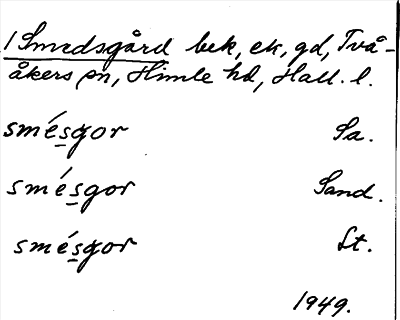 1 Smedsgård bek, ek, gd, Två-
åkers sn, Himle hd, Hall. l.
smésgor Sa.
smésgor Sand.
smésgor Lt.
1949.